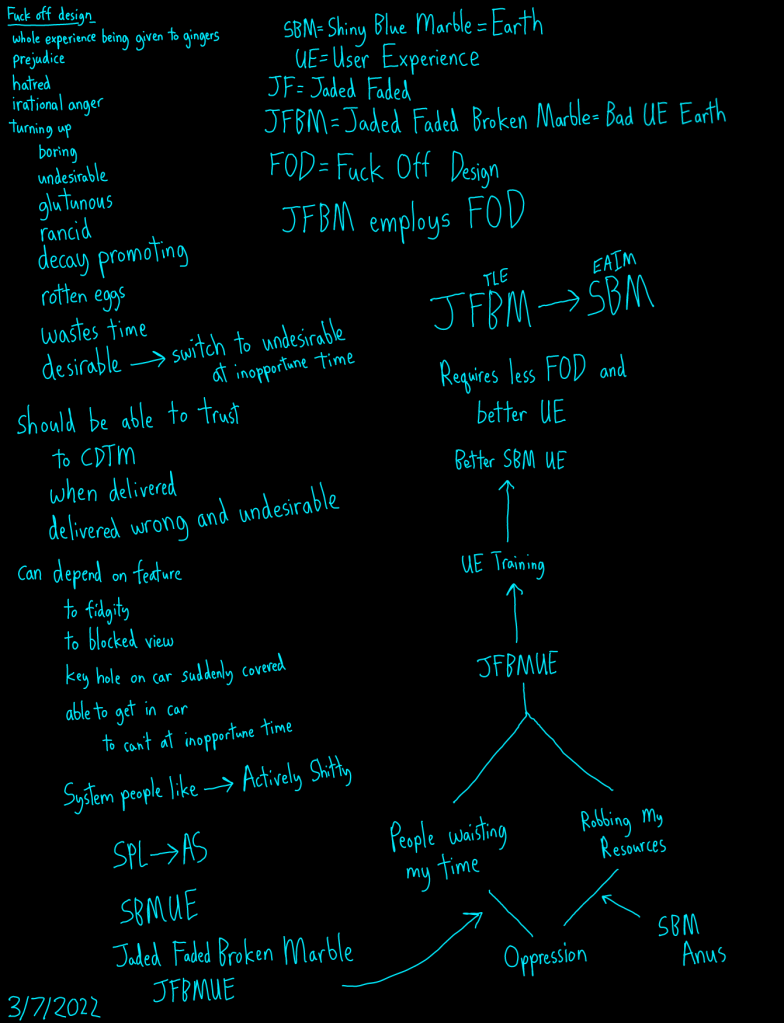 Fuck off design
whole experience being given to gingers
prejudice
hatred
irational anger
turning up
boring
undesirable
glutunous
rancid
decay promoting
rotten eggs
wastes time
desirable → switch to undesirable
at inopportune time
Should be able to trust
to CDTM
when delivered
delivered wrong and undesirable
Can depend on feature
to fidgity
to blocked view
key hole on car suddenly covered
able to get in car
to can't at inopportune time
System people like → Actively Shitty
SPL → AS
SBMUE
Jaded Faded Broken Marble
JFBMUE
3/7/2022
SBM = Shiny Blue Marble = Earth
UE = User Experience
JF = Jaded Faded
JFBM = Jaded Faded Broken Marble = Bad UE Earth
FOD = Fuck Off Design
JFBM employs FOD
TLE EAIM
JFBM → SBM
Requires less FOD and
better UE
Better SBM UE
UE Training
JFBMUE
People waisting
my time
Robbing My
Resources
Oppression
SBM
Anus